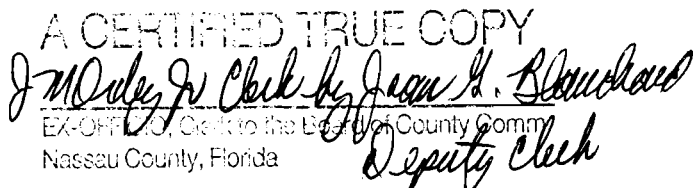 A CERTIFIED TRUE COPY
J M Oxley Jr Clerk by Joan G. Blanchard
EX-OFFICIO, Clerk to the Board of County Comm
Nassau County, Florida
Deputy Clerk